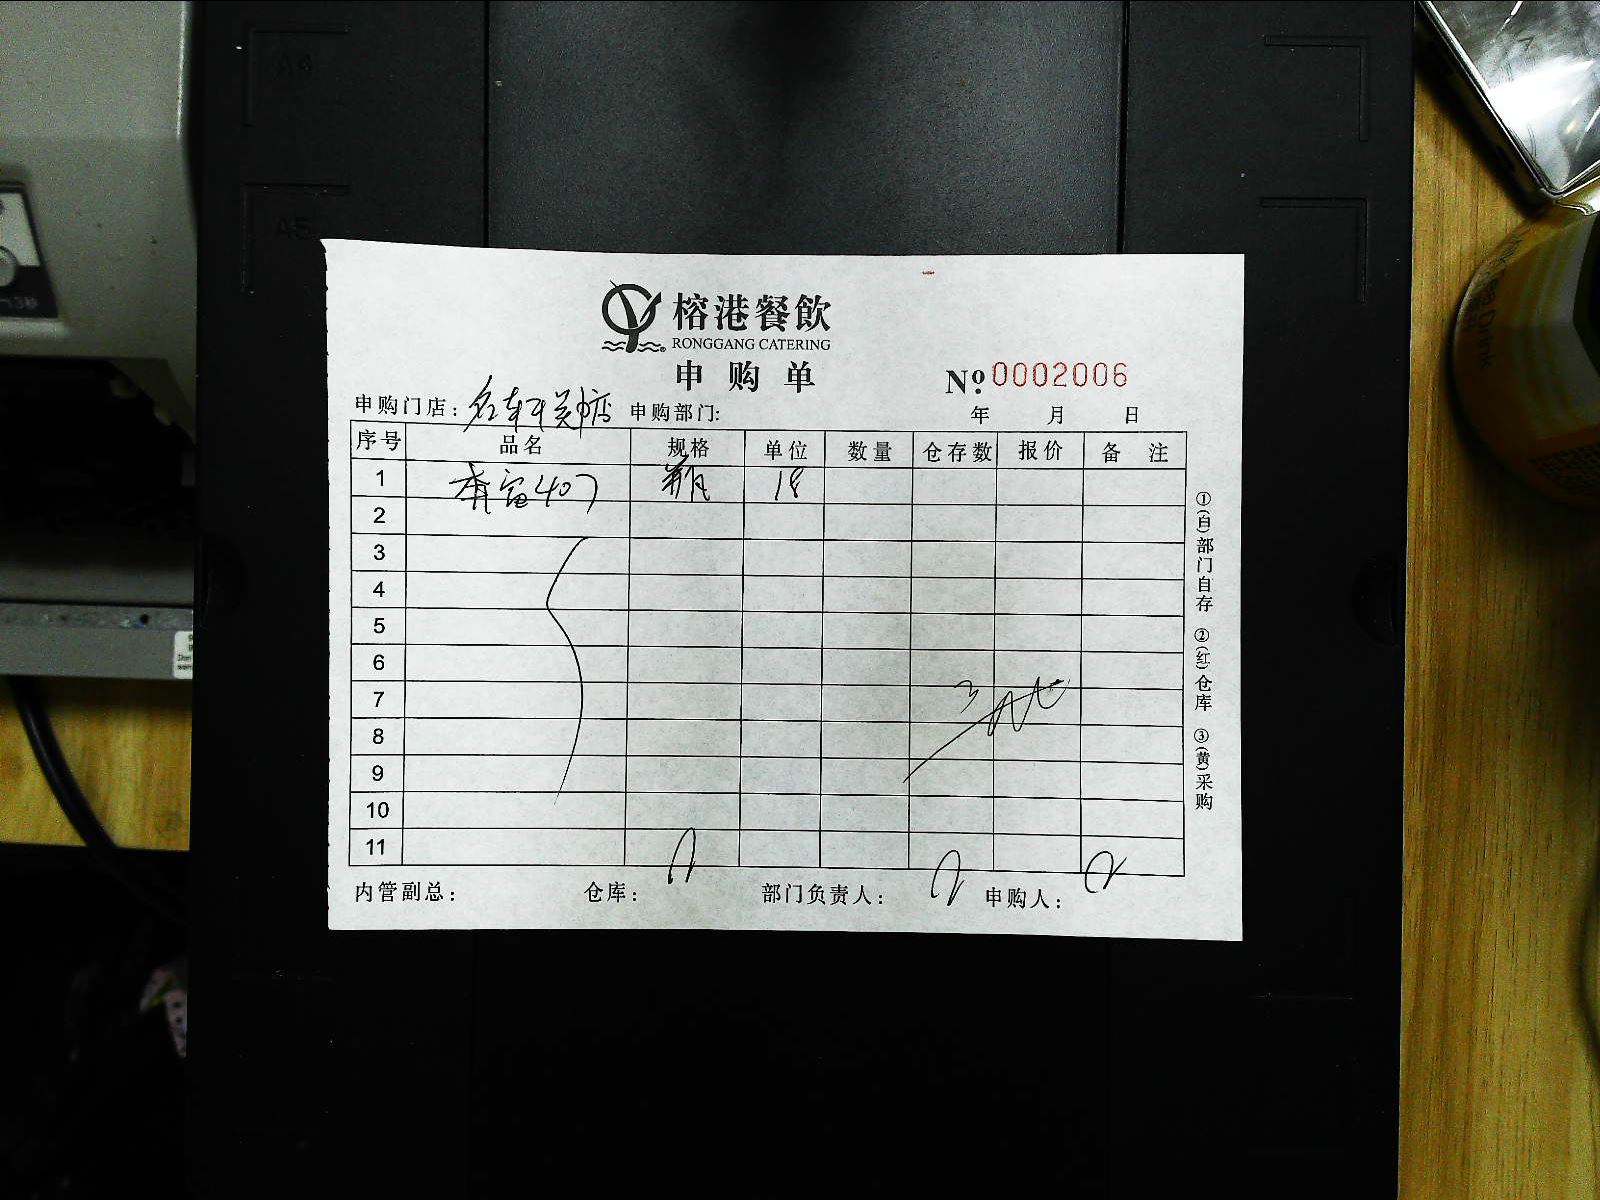 A4
A5
榕港餐飲
RONGGANG CATERING
申购单
№ 0002006
申购门店: 名轩 店 申购部门: 年 月 日
序号 品名 规格 单位 数量 仓存数 报价 备注
1 富407 瓶 18
2
3
4
5
6
7
8
9
10
11
内管副总: 仓库: 部门负责人: 申购人:
①(白)部门自存 ②(红)仓库 ③(黄)采购
Drink